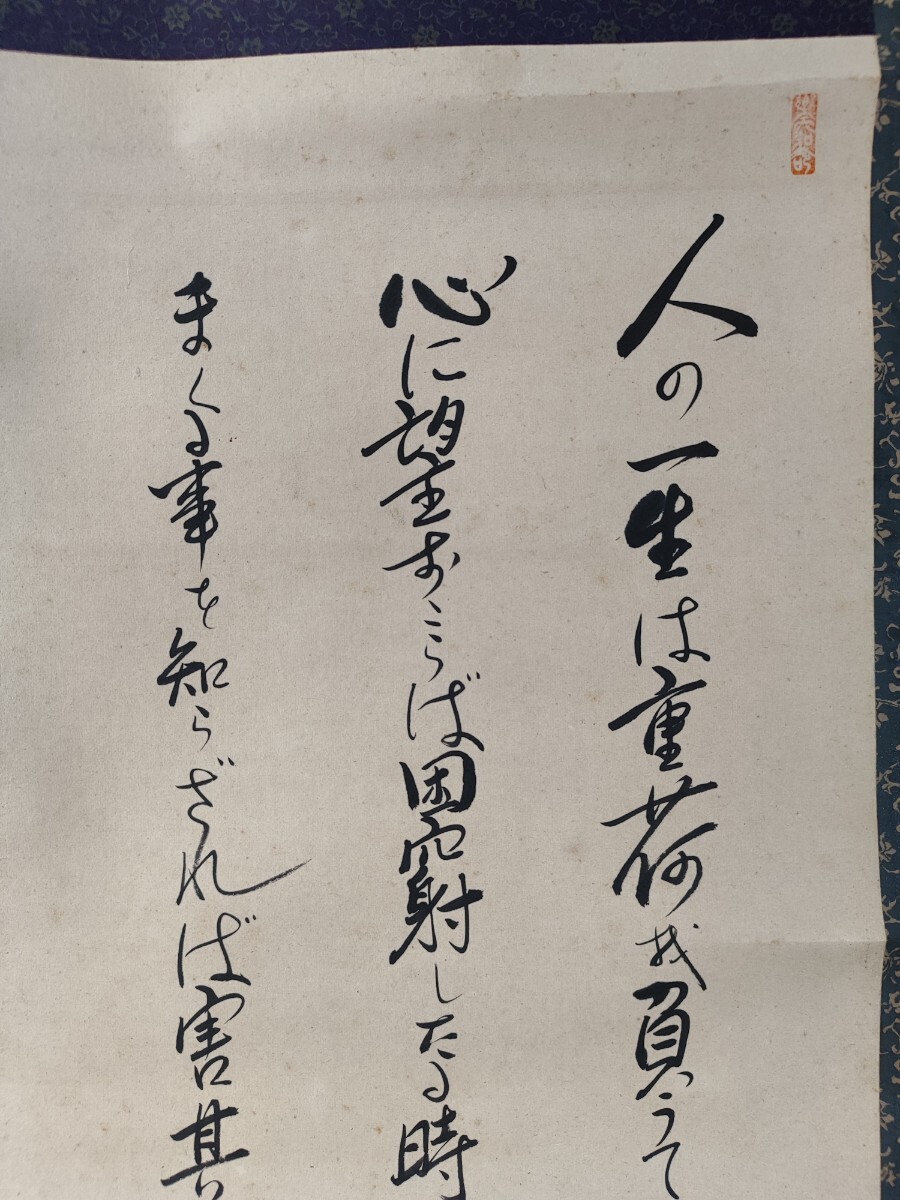 人の一生は重荷を負うて
心に望おこらば困窮したる時
まくる事を知らざれば害其